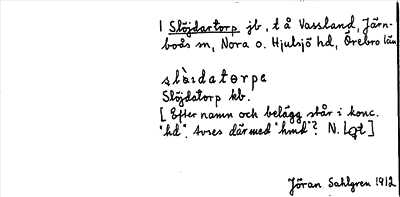 1 Slöjdartorp jb, t å Vassland, Järn-
boås sn, Nora o. Hjulsjö hd, Örebro län
Slöjdatorp kb.
[Efter namn och belägg står i konc.
"hd". Avses därmed "hmd"? N.
Jöran Sahlgren 1912